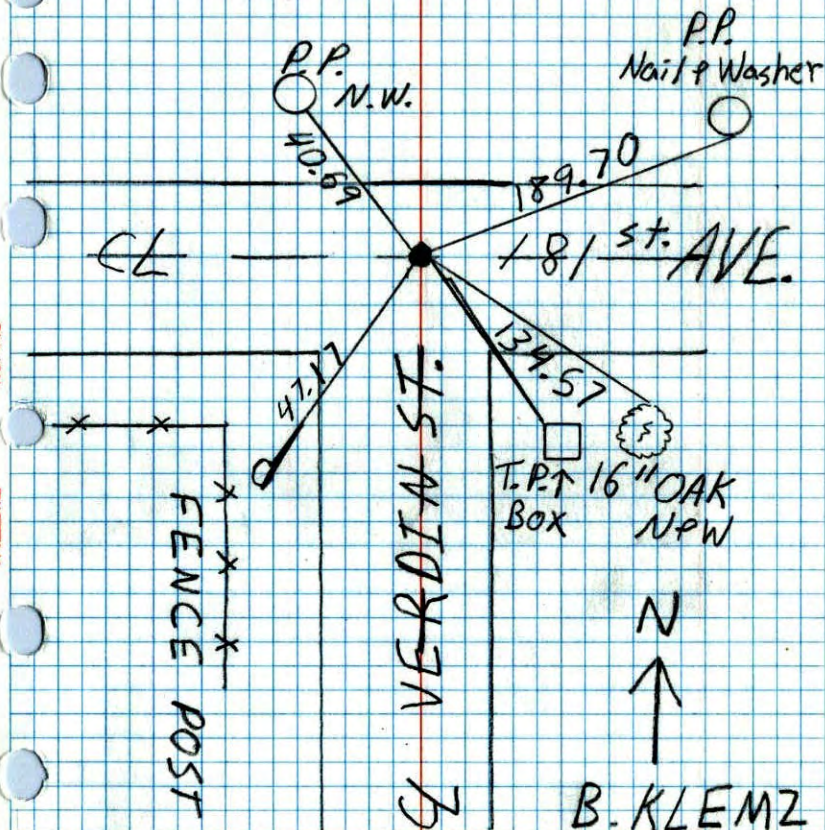 P.P.
N.W.
P.P.
Nail & Washer
40.69
189.70
CL
181 st. AVE.
47.17
134.57
T.P.↑
Box
16" OAK
N&W
VERDIN ST.
FENCE POST
N
CL
B. KLEMZ